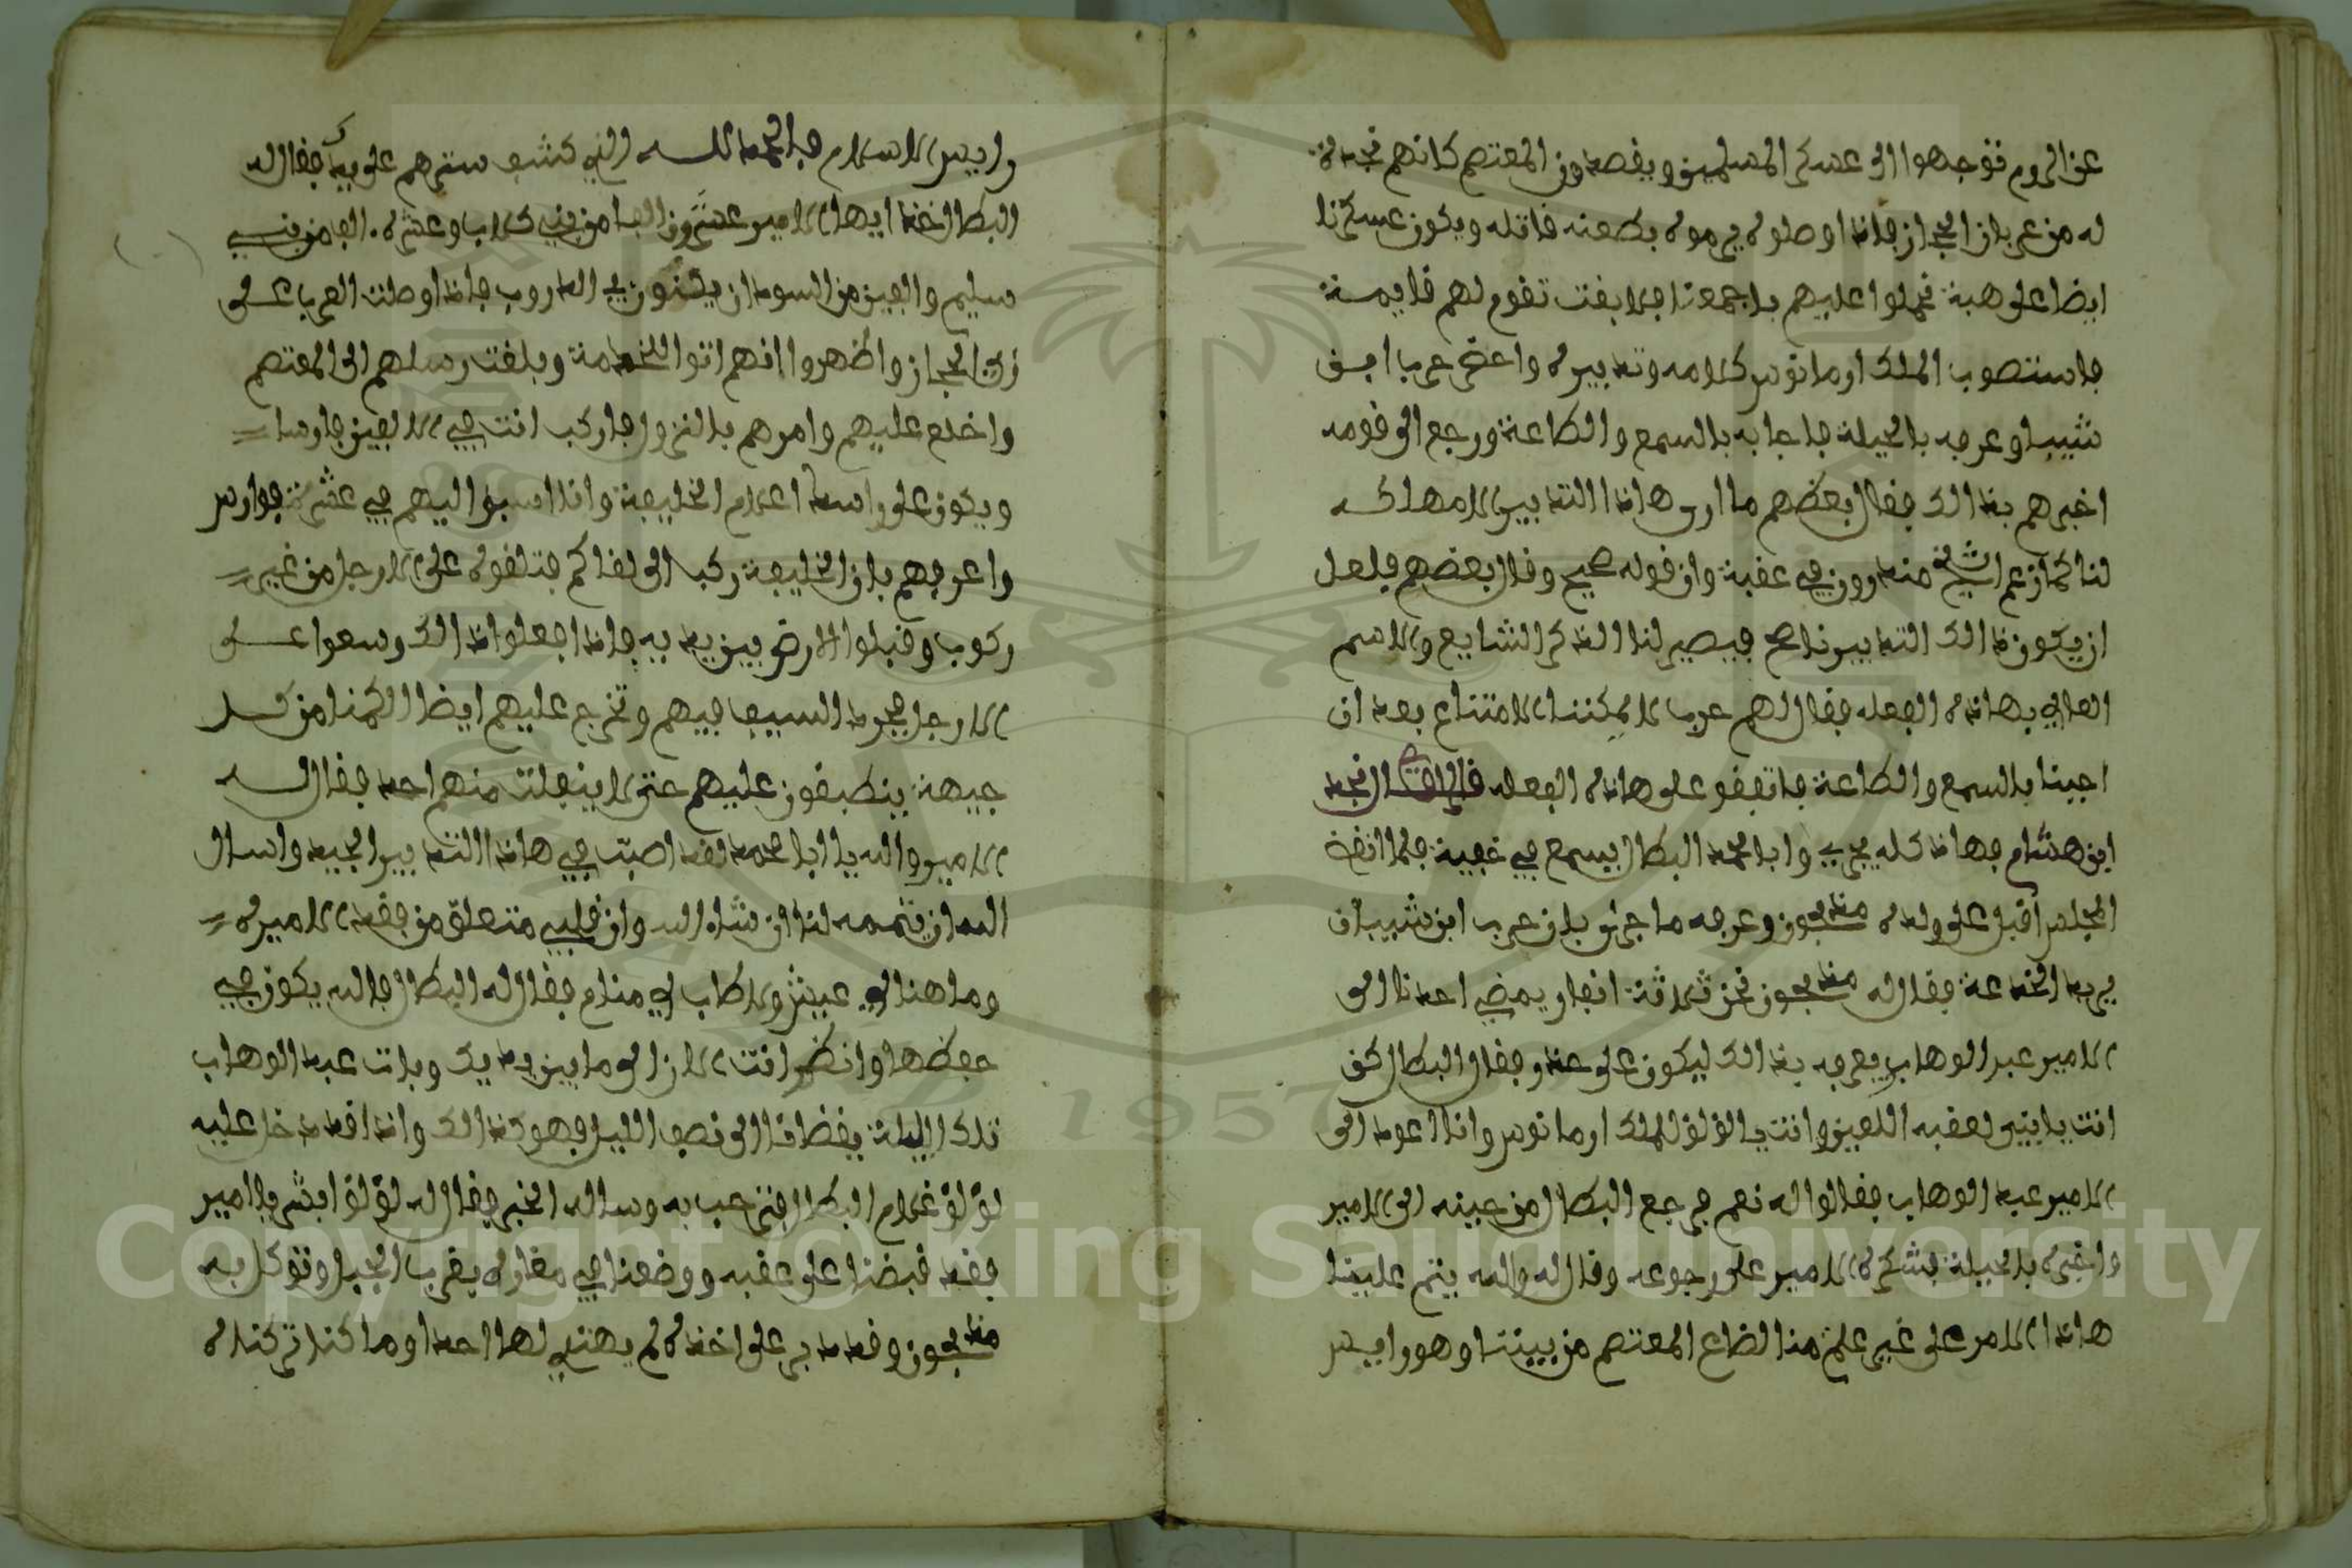 عن الروم فتوجهوا الى عسكر المسلمين ويقصدون المعتصم كانهم نجدة
له من عربان الحجاز فاذا وصلوه يرموه بطعنة قاتله ويكون عسكرنا
ايضا على هبة فحملوا عليهم باجمعنا فلا بقت تقوم لهم قايمة
فاستصوب الملك ارمانوس كلامه وتدبيره واعضى حرب ابن
شبيب وعرفه بالحيلة فاجابه بالسمع والطاعة ورجع الى قومه
اخبرهم بذالك فقال بعضهم ما ارى هاذا التدبير الا مهلكه
لنا كما زعم الشيخ منذرون في عقبة وان قوله صحيح وقال بعضهم فلعل
ان يكون ذالك التدبير ناجح فيصير لنا الذكر الشايع والاسم
العالي بهاذه الفعله فقال لهم حرب لا يمكننا الامتناع بعد ان
اجبنا بالسمع والطاعة فاتفقو على هاذه الفعله قال نجد
ابن هشام فهاذا كله يجري وابا محمد البطال يسمع في غفية فلما انفض
المجلس اقبل على ولده مذبحون وعرفه ما جرى بان حرب ابن شبيب ان
يريد الخداعة فقال له مذبحون نحن ثلاثة انفار يمضي احدنا الى
الامير عبد الوهاب يعرفه بذالك ليكون على حذر وفقال البطال كن
انت يا بني لعقبه اللعين وانت يا لؤلؤ للملك ارمانوس وانا اعود الى
الامير عبد الوهاب فقالوا له نعم فرجع البطال من حينه الى الامير
واخبره بالحيلة فشكره الامير على رجوعه وقال له والله يتم علينا
هاذا الامر على غير علم منا لضاع المعتصم من بيننا وهو راييس
وراييس الاسلام فالحمد لله الذي كشف سترهم على يدك فقال له
البطال خذ ايها الامير عشرون الف من بني كلاب وعشره الف من بني
سليم والفين من السودان يكمنون في الدروب فاذا وصلت العرب على
زي الحجاز واظهروا انهم اتوا للخدمة وبلغت رسلهم الى المعتصم
واخلع عليهم وامرهم بالنزول فاركب انت في الالفين فارس
ويكون على راسك اعلام الخليفة وانا اسبق اليهم في عشرة فوارس
واعرفهم بان الخليفة ركب الى لقاكم فتلقوه على الارجل من غير
ركوب وقبلوا الارض بين يديه فاذا فعلوا ذالك وسعوا على
الارجل فجرد السيف فيهم وتخرج عليهم ايضا الكمنا من كل
جيهة ينطبقون عليهم حتى لا ينفلت منهم احد فقال له
الامير والله يا ابا محمد لقد اصبت في هاذا التدبير الجيد واسال
الله ان يتممه لنا ان شاء الله وان قلبي متعلق من فقد الاميره
وما هنا لي عيش ولا طاب لي منام فقال له البطال فالله يكون في
حفظها وانظر انت الان الى ما بين يديك وبات عبد الوهاب
تلك الليلة يقضانا الى نصف الليل فهو كذالك واذا قد دخل عليه
لؤلؤ غلام البطال فترحب به وساله الخبر فقال له لؤلؤ ابشر يا امير
فقد قبضنا على عقبه ووضعناه في مغاره بقرب الجبل وتوكل به
مذبحون وقد دبر على اخذه لم يهتدي لها احدا وما كنا تركناه